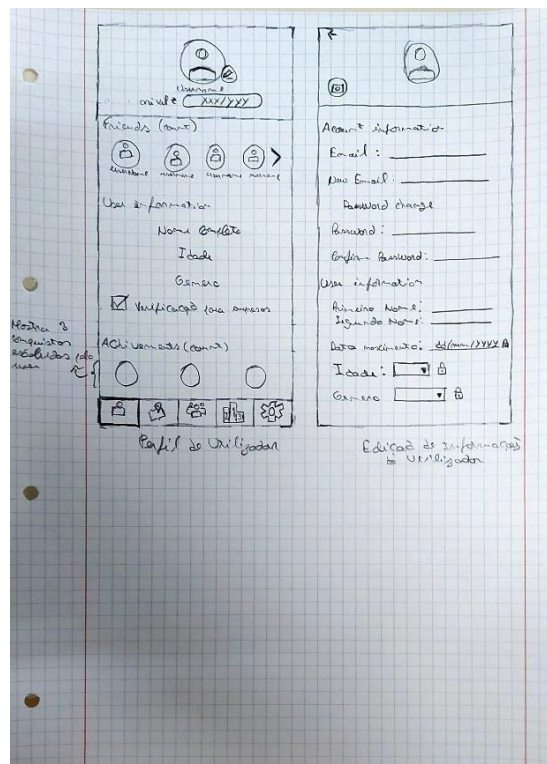 Username
nivel XXX/YYY
Friends (count)
username username username username
User information
Nome Completo
Idade
Genero
Verificação para empresas
Achivements (count)
Mostra 3
Conquistas
escolhidas pelo
user
1 2 3
Perfil de Utilizador
Account information
Email:
New Email:
Password change
Password:
Confirm Password:
User information
Primeiro Nome:
Segundo Nome:
Data nascimento: dd/mm/YYYY
Idade:
Genero
Edição de Informações
do Utilizador